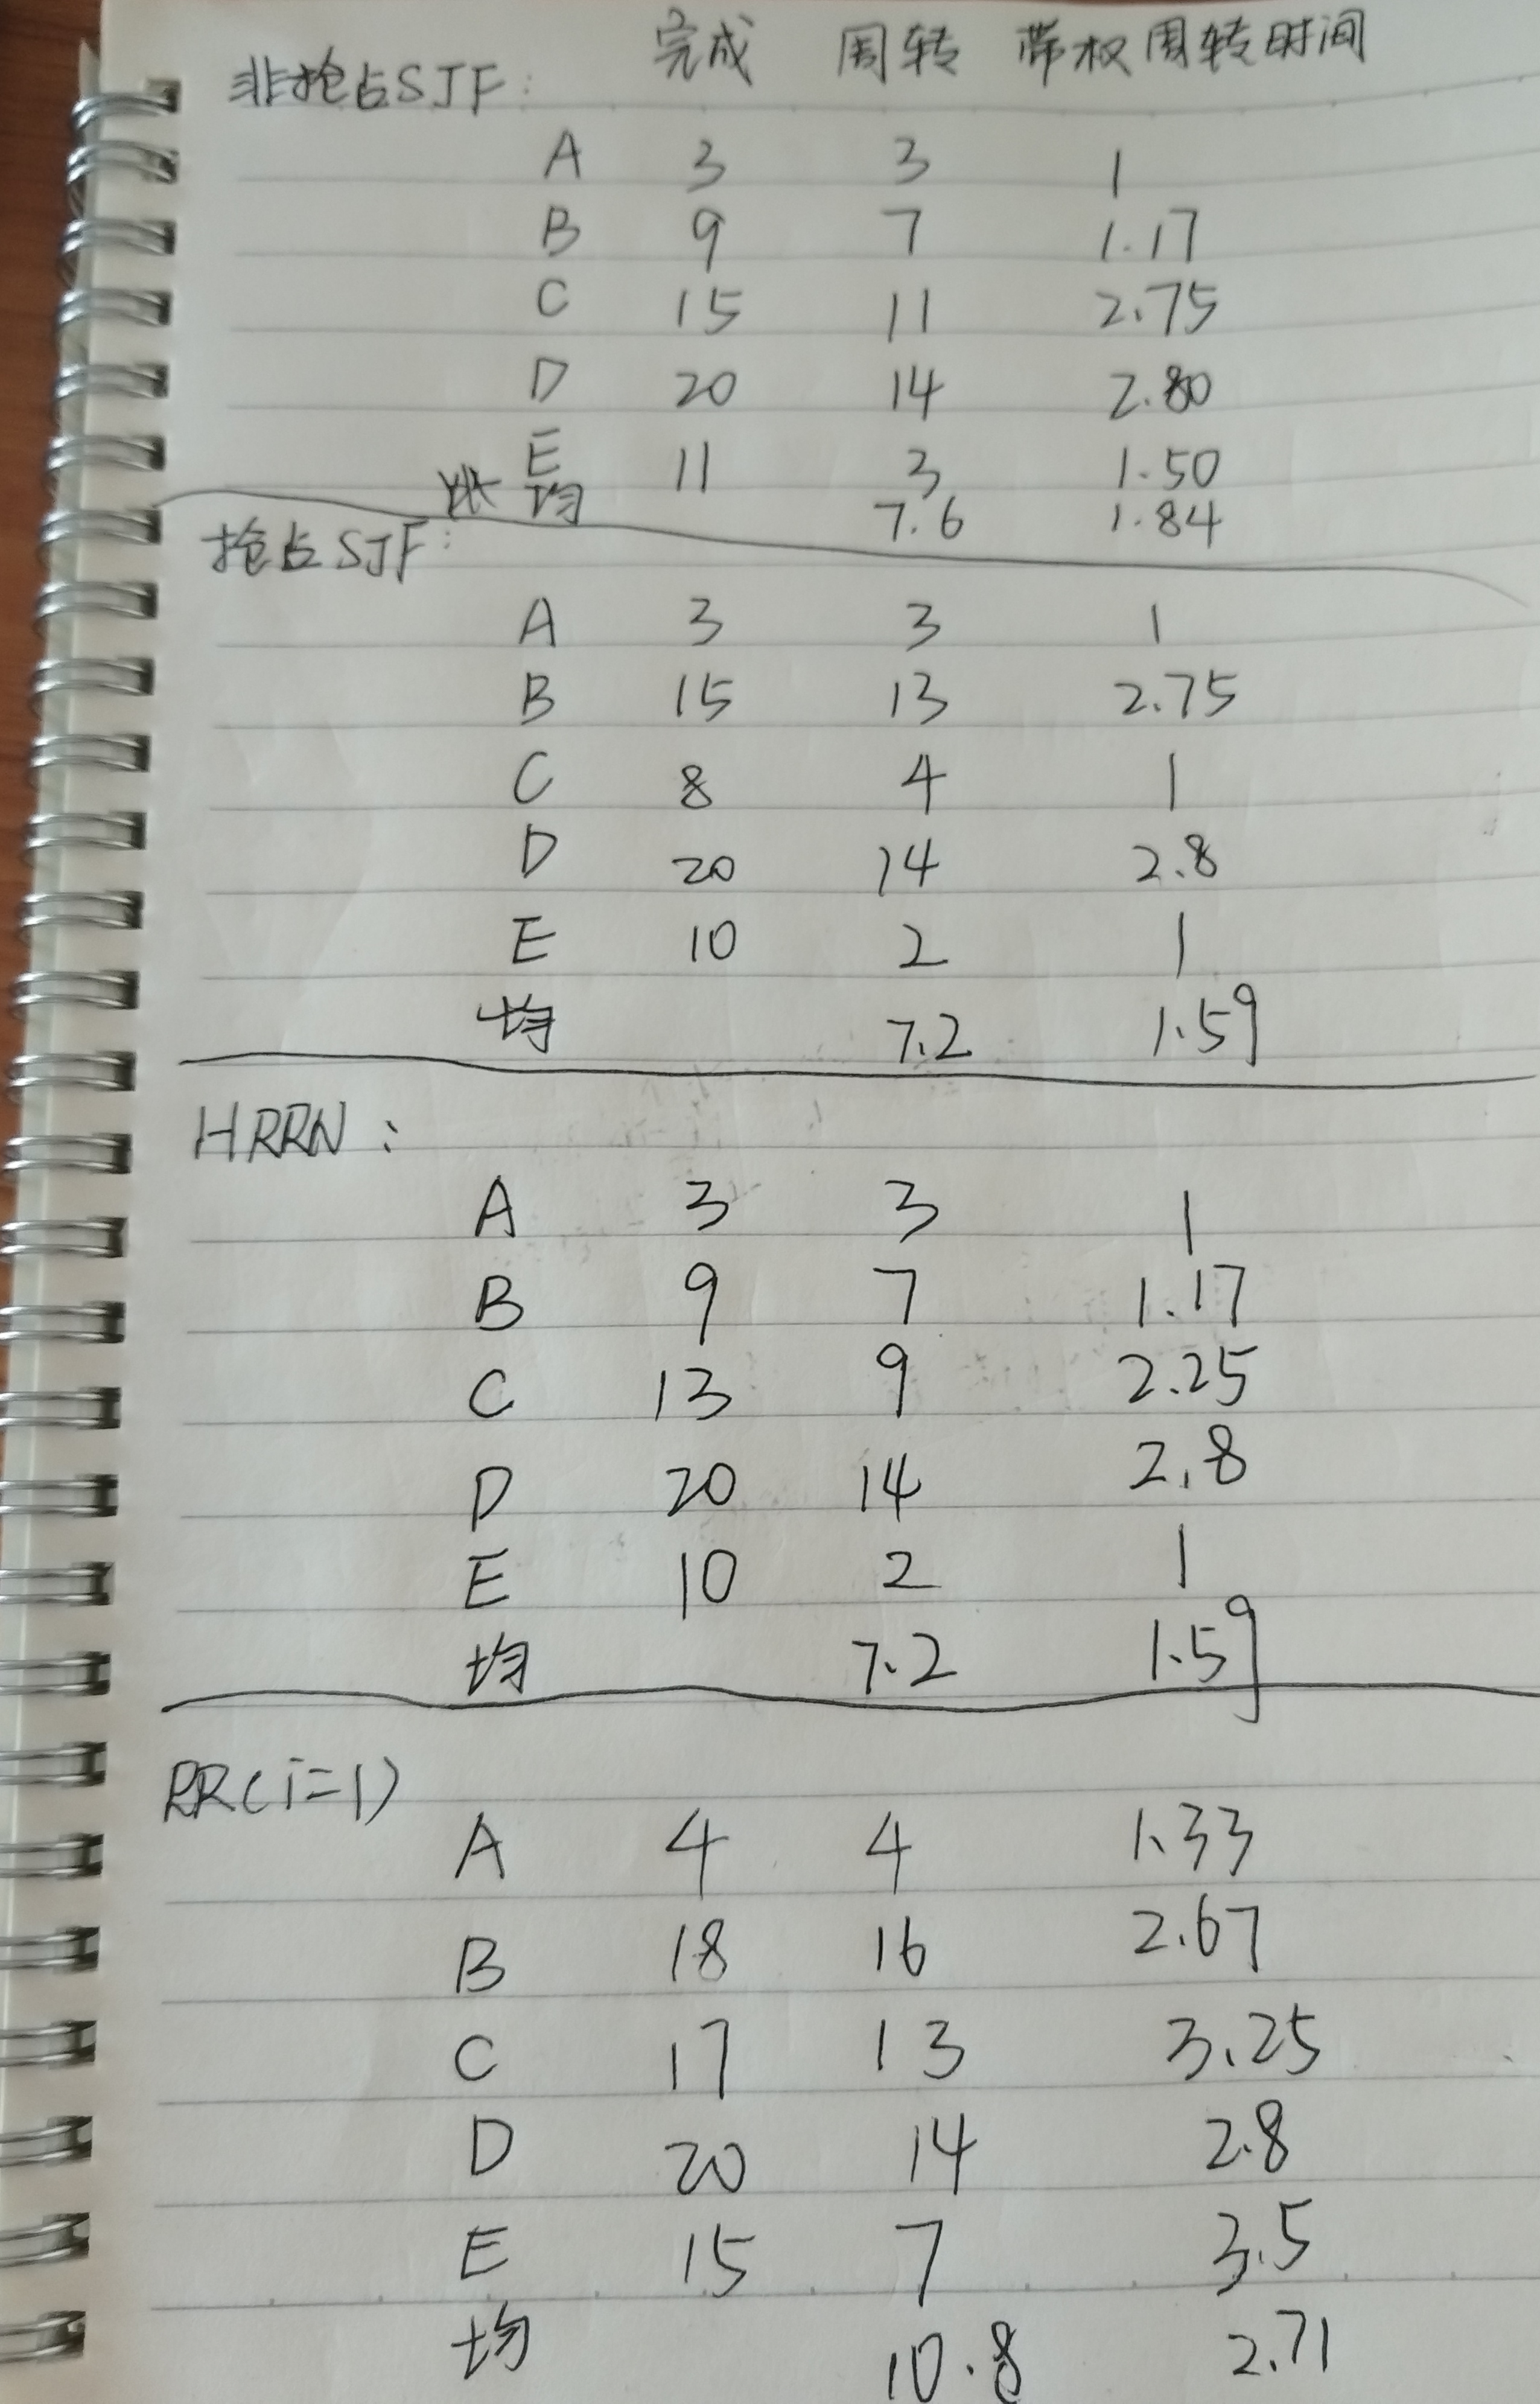 完成 周转 带权周转时间
非抢占SJF:
A 3 3 1
B 9 7 1.17
C 15 11 2.75
D 20 14 2.80
E 11 3 1.50
均 7.6 1.84
抢占SJF:
A 3 3 1
B 15 13 2.75
C 8 4 1
D 20 14 2.8
E 10 2 1
均 7.2 1.59
HRRN:
A 3 3 1
B 9 7 1.17
C 13 9 2.25
D 20 14 2.8
E 10 2 1
均 7.2 1.59
RR(i=1)
A 4 4 1.33
B 18 16 2.67
C 17 13 3.25
D 20 14 2.8
E 15 7 3.5
均 10.8 2.71